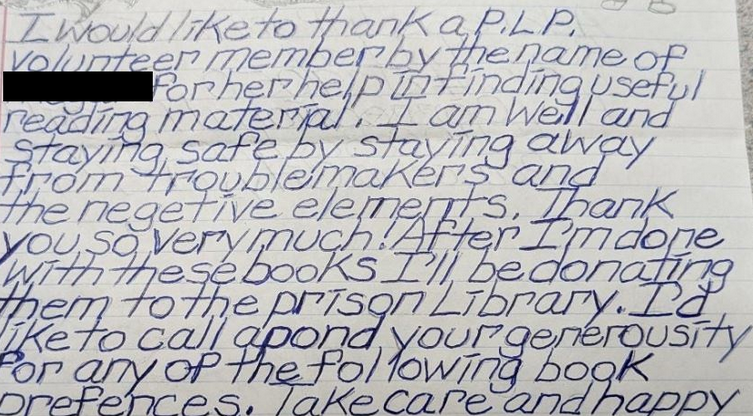 I would like to thank a P.L.P.
volunteer member by the name of
for her help in finding useful
reading material. I am well and
staying safe by staying away
from troublemakers and
the negetive elements. Thank
you so very much! After I'm done
with these books I'll be donating
them to the prison Library. I'd
like to call apond your generousity
for any of the following book
prefences. Take care and happy